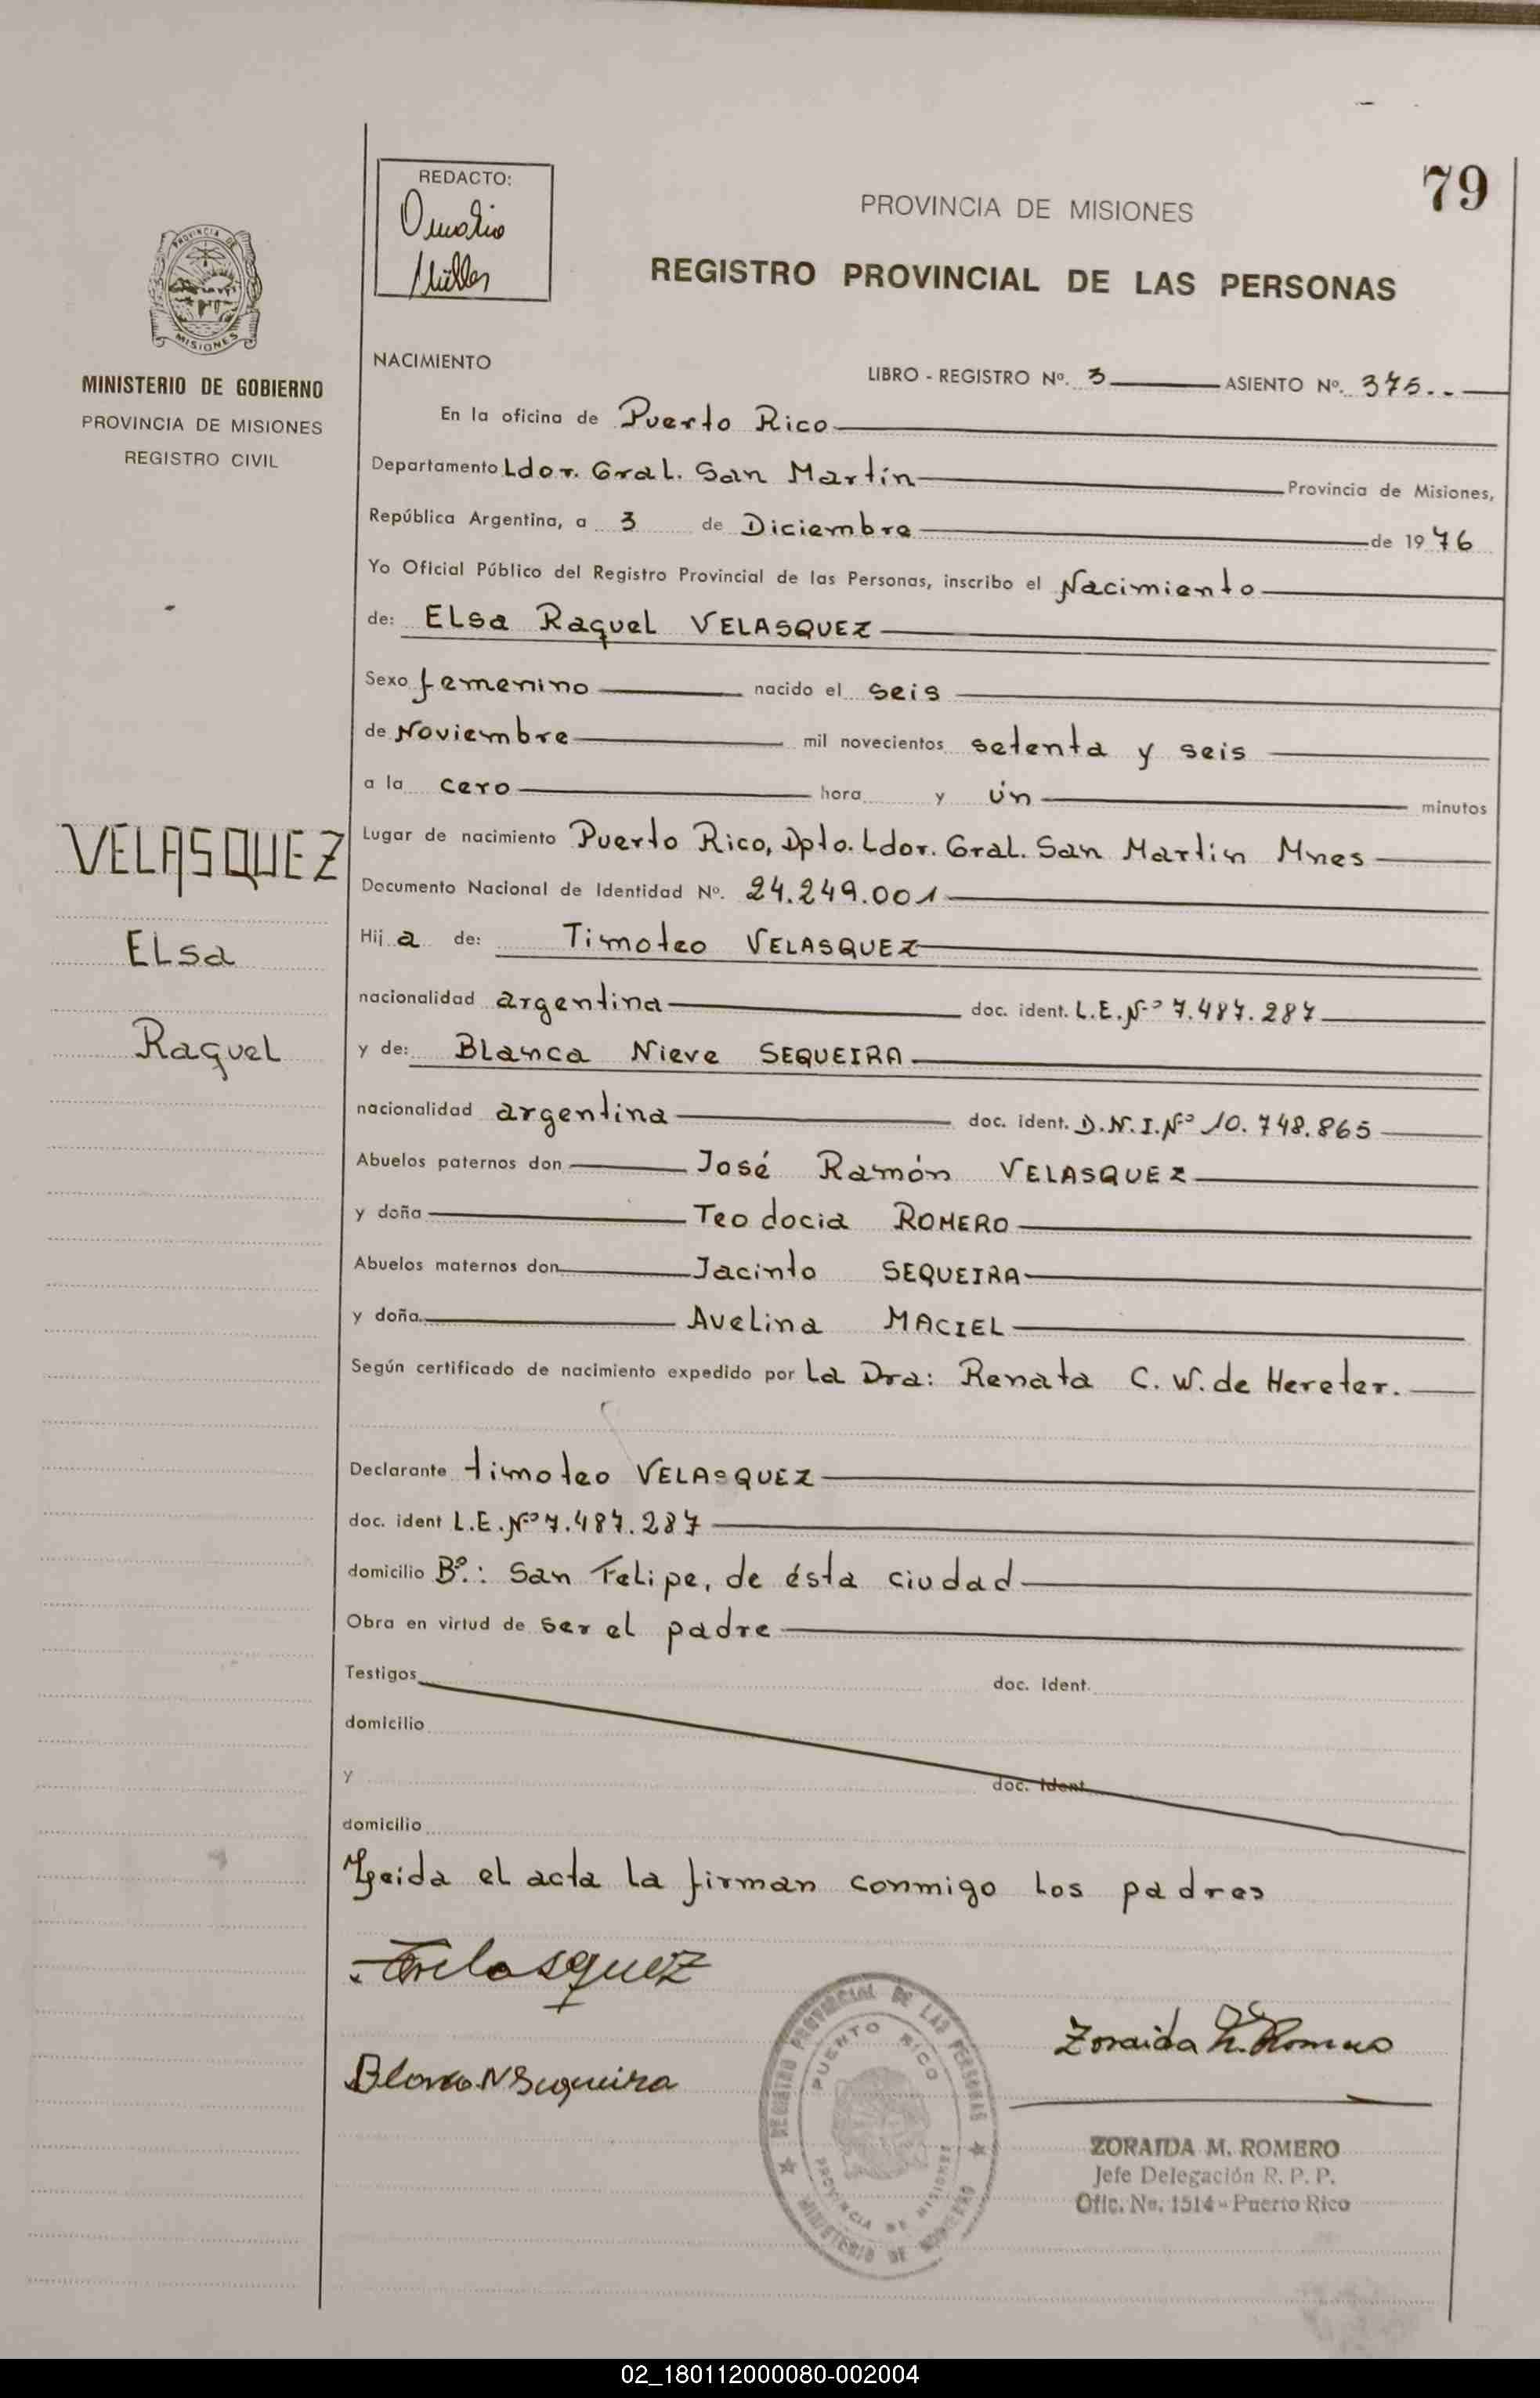 79
REDACTO:
PROVINCIA DE MISIONES
REGISTRO PROVINCIAL DE LAS PERSONAS
PROVINCIA DE
MISIONES
MINISTERIO DE GOBIERNO
PROVINCIA DE MISIONES
REGISTRO CIVIL
VELASQUEZ
Elsa
Raquel
NACIMIENTO
LIBRO - REGISTRO Nº. 3 ASIENTO Nº. 375..
En la oficina de Puerto Rico
Departamento Ldor. Gral. San Martín Provincia de Misiones,
República Argentina, a 3 de Diciembre de 1976
Yo Oficial Público del Registro Provincial de las Personas, inscribo el Nacimiento
de: Elsa Raquel VELASQUEZ
Sexo femenino nacido el seis
de Noviembre mil novecientos setenta y seis
a la cero hora y ún minutos
Lugar de nacimiento Puerto Rico, Dpto. Ldor. Gral. San Martin Mnes
Documento Nacional de Identidad Nº. 24.249.001
Hija de: Timoteo VELASQUEZ
nacionalidad argentina doc. ident. L.E.Nº 7.487.287
y de: Blanca Nieve SEQUEIRA
nacionalidad argentina doc. ident. D.N.I.Nº 10.748.865
Abuelos paternos don José Ramón VELASQUEZ
y doña Teodocia ROMERO
Abuelos maternos don Jacinto SEQUEIRA
y doña Avelina MACIEL
Según certificado de nacimiento expedido por La Dra: Renata C. W. de Hereter.
Declarante timoteo VELASQUEZ
doc. ident L.E.Nº 7.487.287
domicilio Bº.: San Felipe, de ésta ciudad
Obra en virtud de ser el padre
Testigos doc. Ident.
domicilio
y doc. Ident.
domicilio
Leida el acta la firman conmigo los padres
Blanca N Sequeira
REGISTRO PROVINCIAL DE LAS PERSONAS
PUERTO RICO
PROVINCIA DE MISIONES
MINISTERIO DE GOBIERNO
Zoraida M. Romero
ZORAIDA M. ROMERO
Jefe Delegación R. P. P.
Ofic. No. 1514 - Puerto Rico
02_180112000080-002004